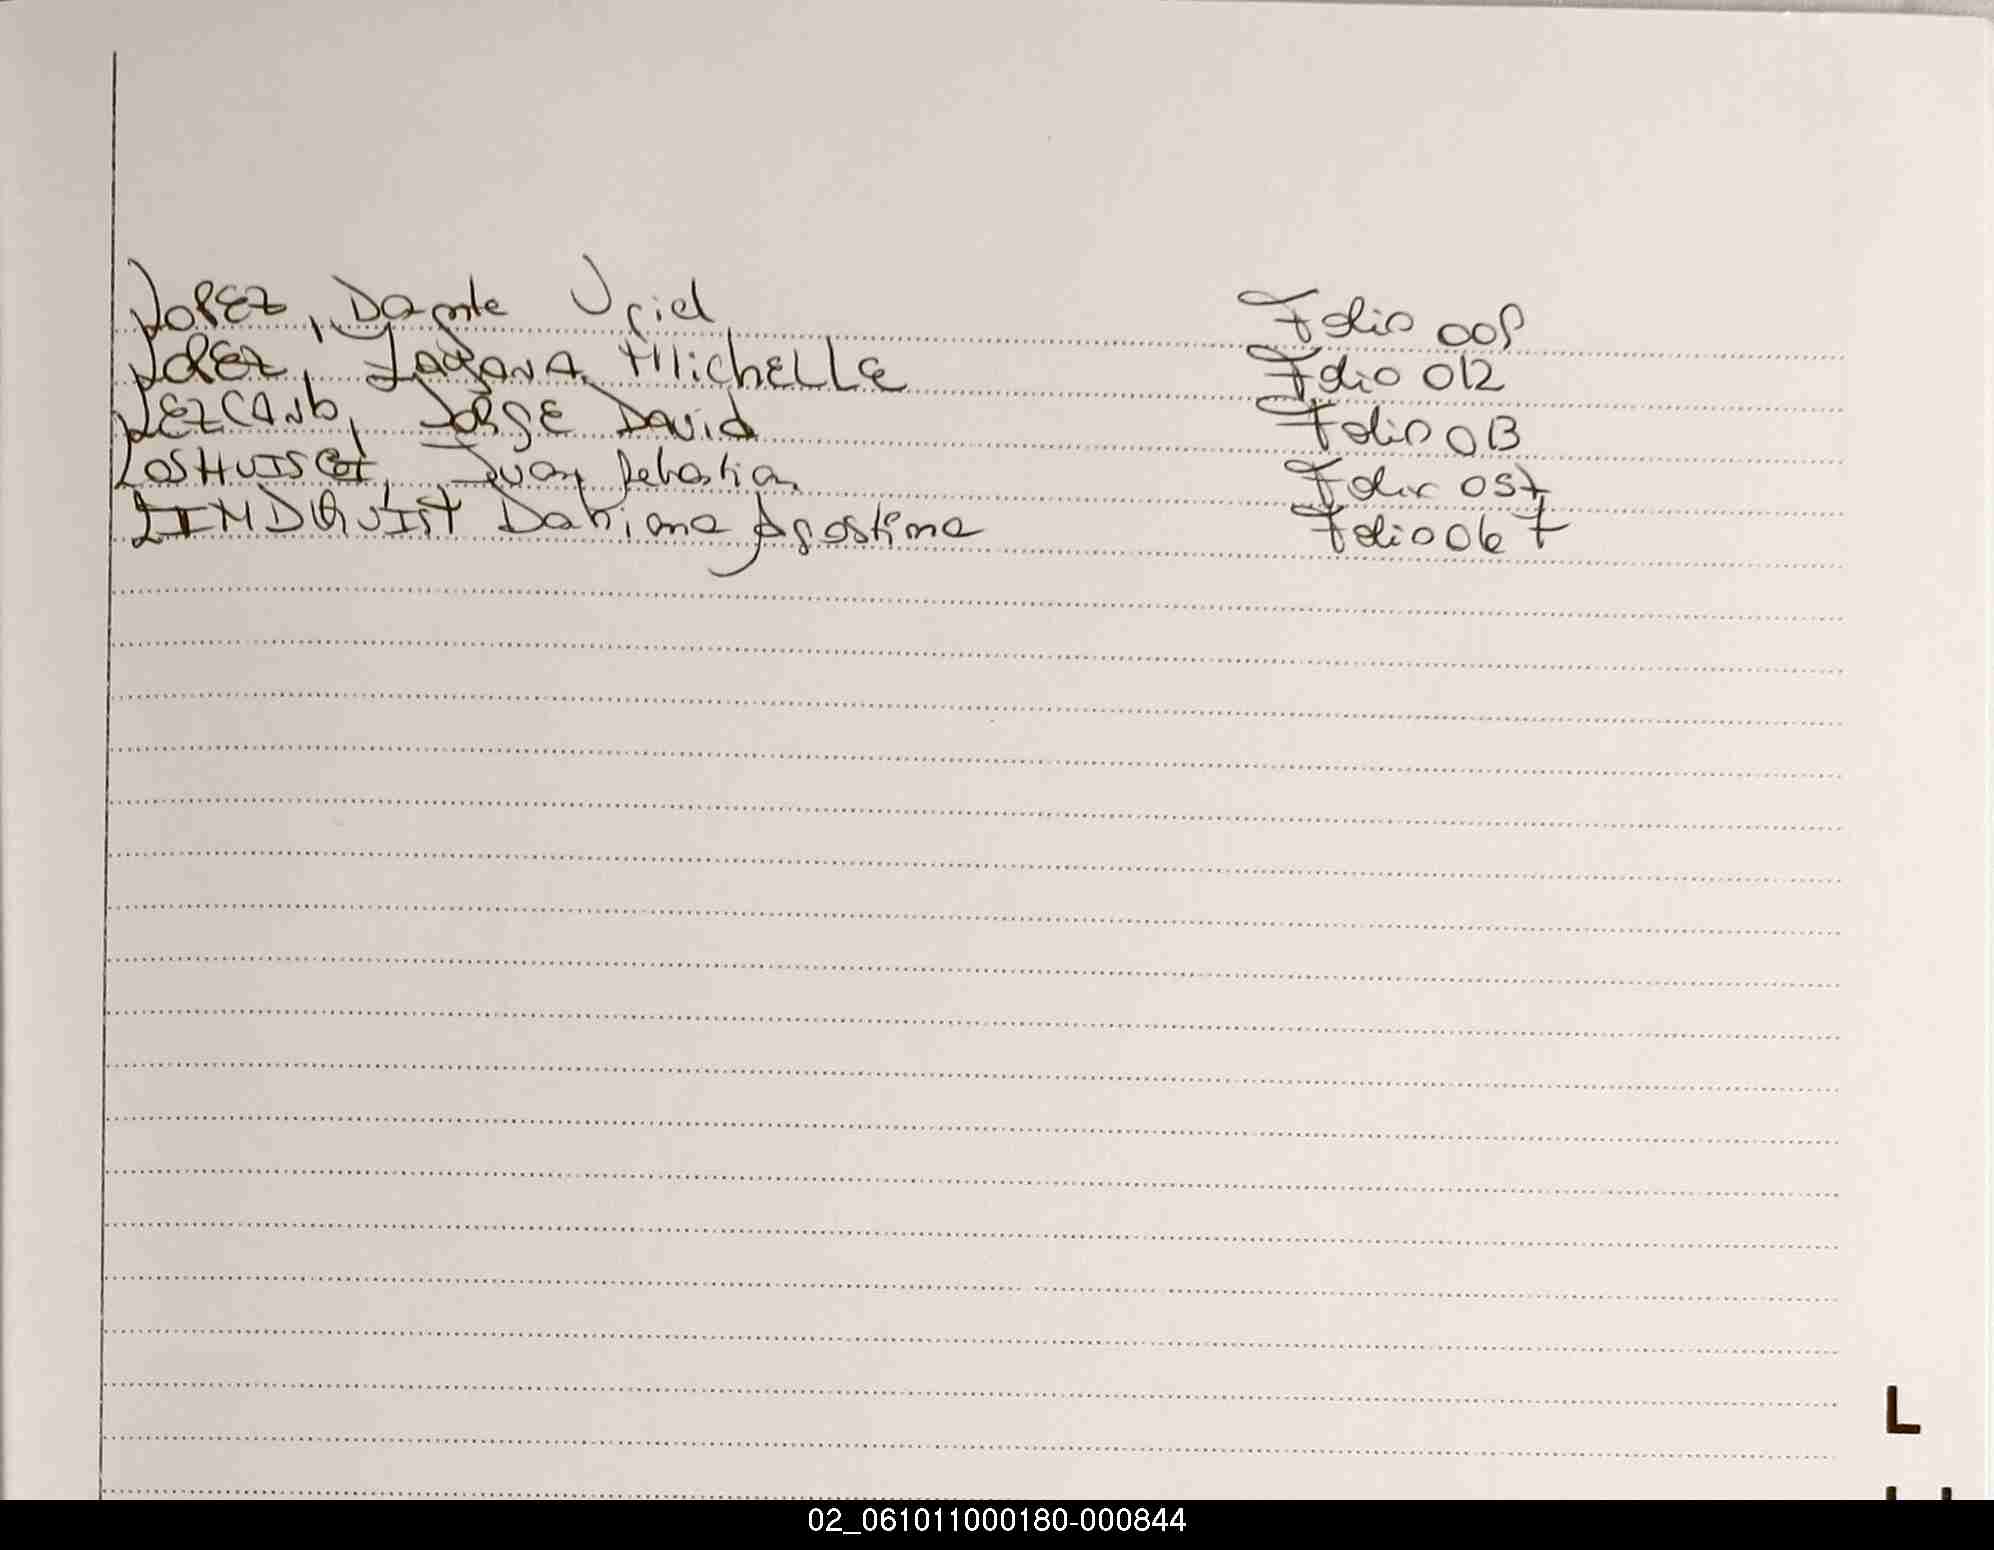 LOPEZ, Dante Uriel Folio 008
LOPEZ, Michelle Folio 012
LEZCANO, Jorge David Folio 013
Juan Sebastian Folio 057
LINDQUIST Dahiana Agostina Folio 067
L
02_061011000180-000844